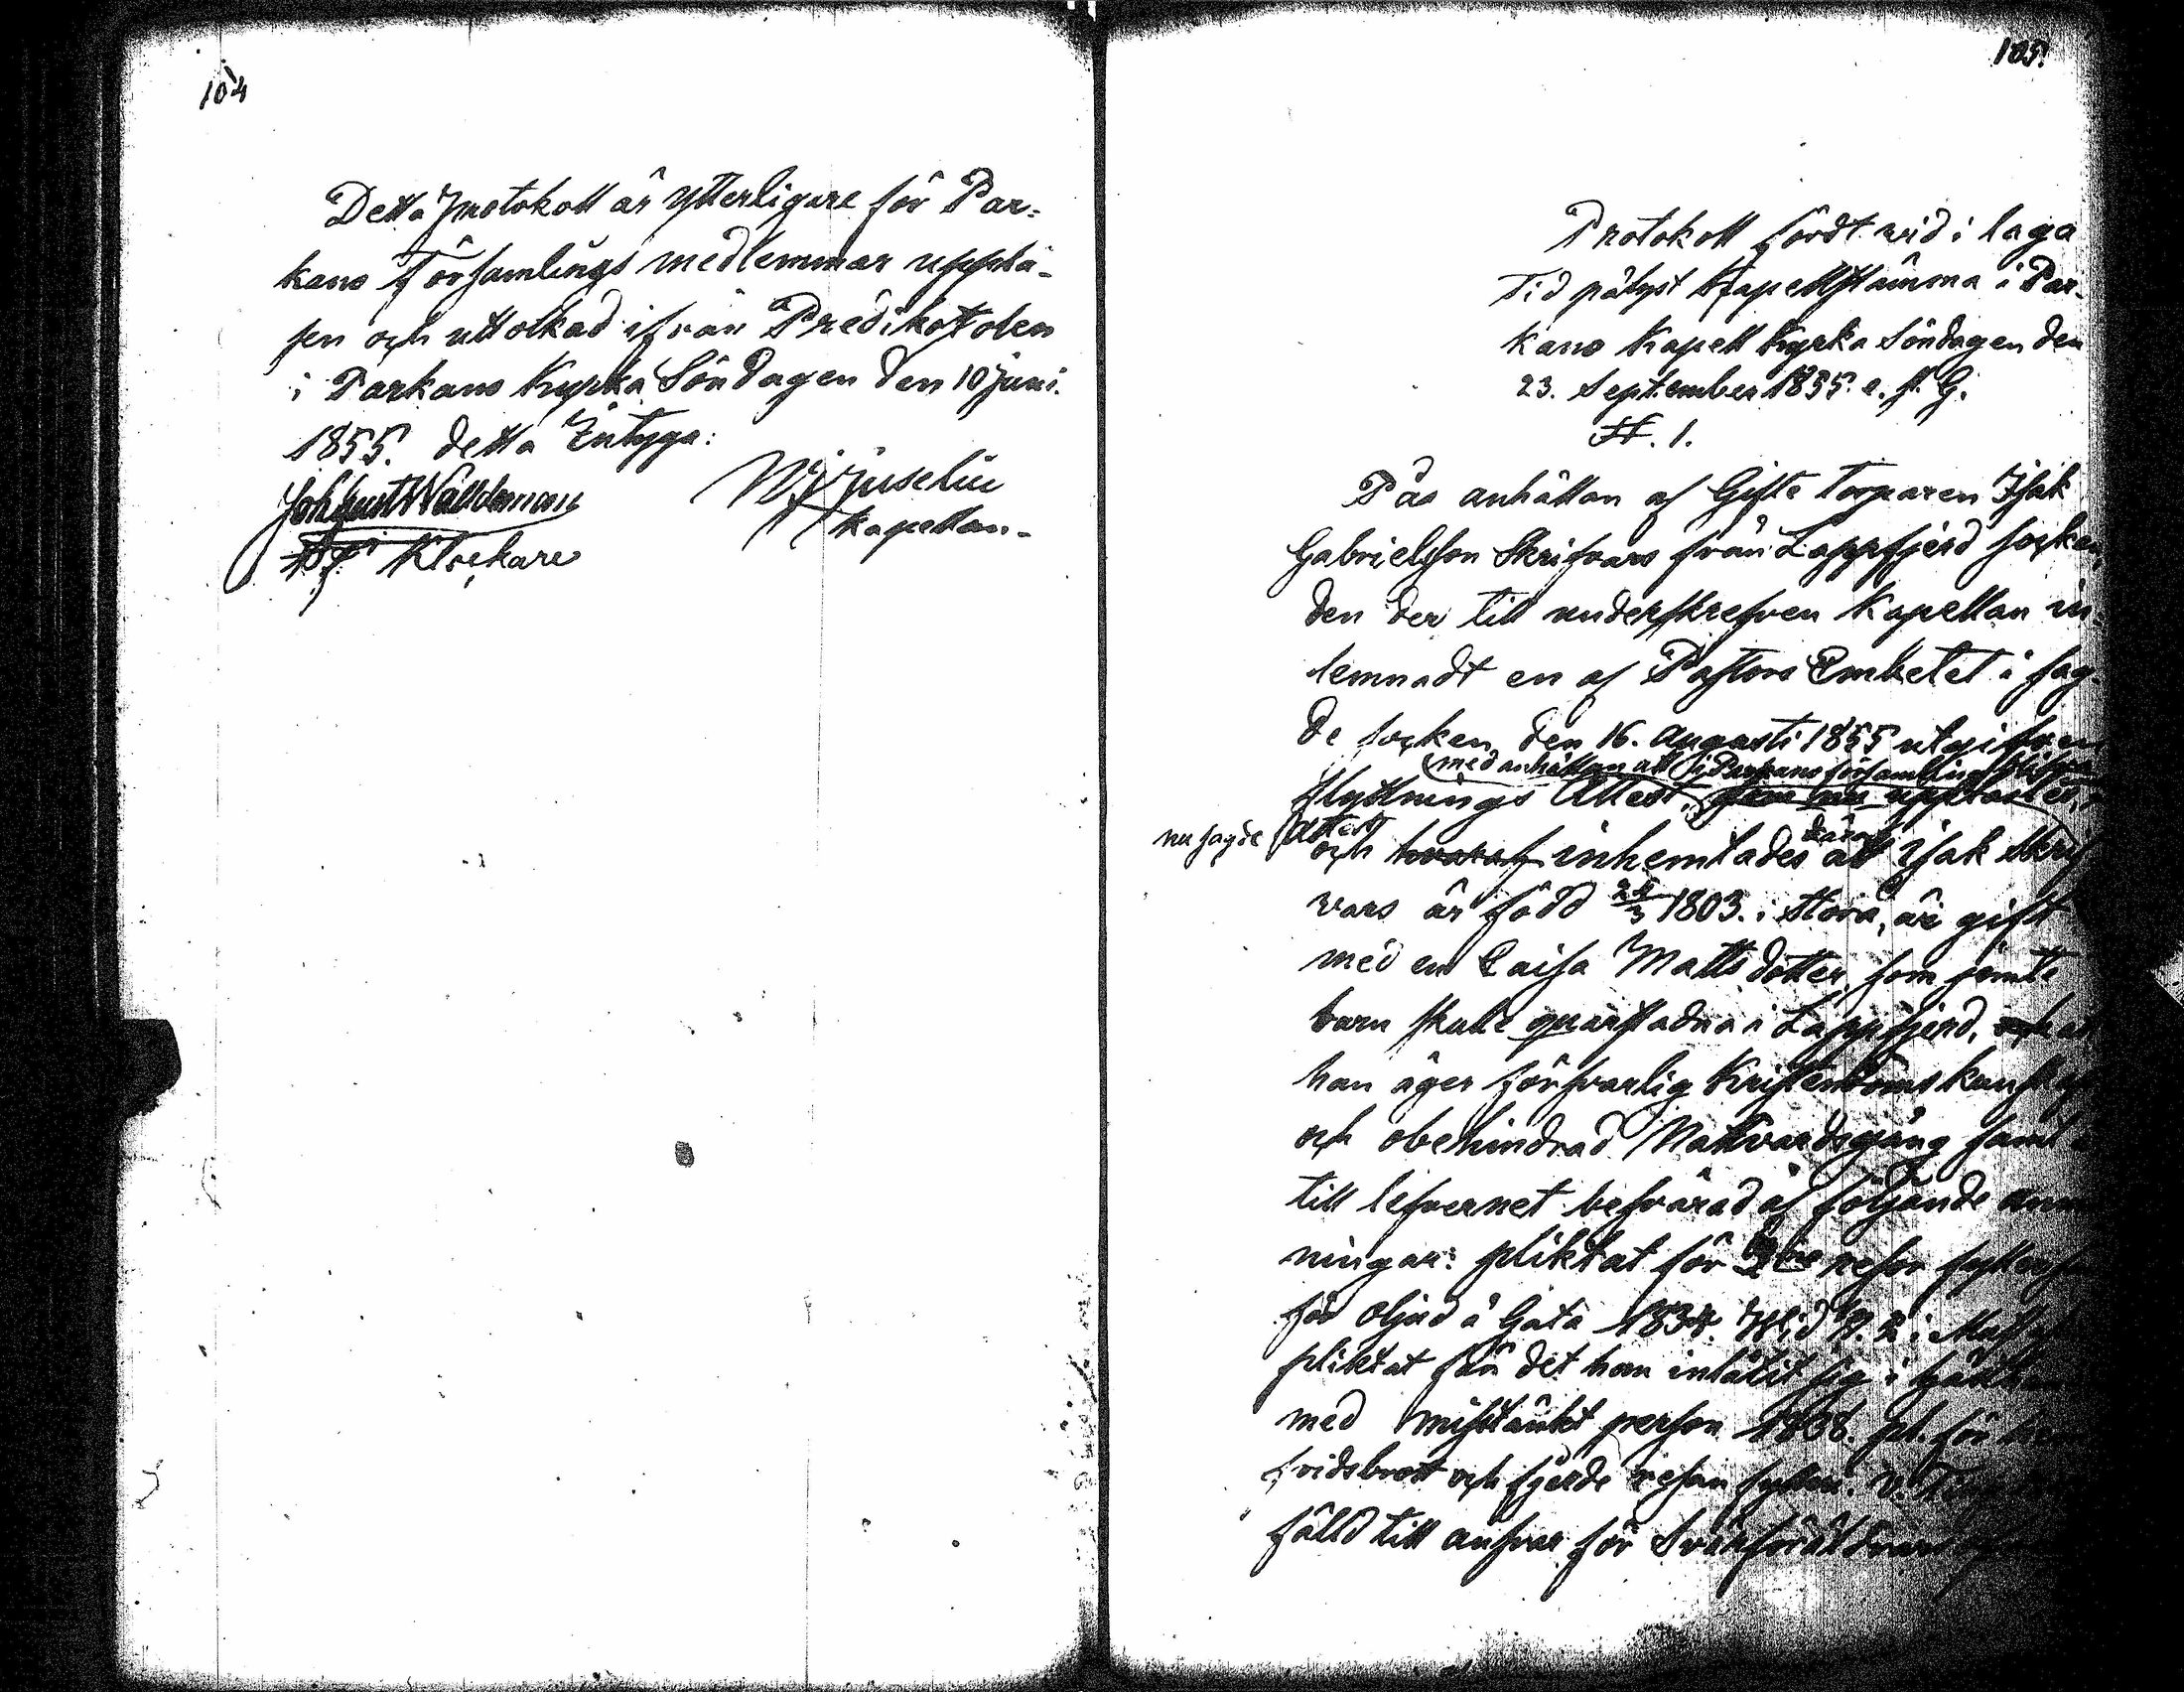 104
Detta Protokoll är ytterligare för Par-
kano Församlings medlemmar upplä-
sen och uttolkad ifrån Predikostolen
i Parkano Kyrka Söndagen den 10 Juni
1855. detta Intyga:
Joh Gust Walldeman
Klockare
Juselius
Kapellan.
105.
Protokoll fördt wid i laga
Tid pålyst Kapellstämma i Par-
kano Kapell Kyrka Söndagen den
23. September 1855. e. f. G.
№. 1.
Pås anhållan af Gifte Torparen Isak
Gabrielsson Skrifvars från Lappfjerd socken,
den der till underskrefven Kapellan in-
lemnadt en af Pastors Embetet i sag-
de socken den 16. Augusti 1855 utgifven
med anhållan att i Parkano församling blifva
flyttnings Attest, upptagas,
nu sagde Attest
och hwaraf inhemtades att Isak Skrif
wars är född 24/3 1803. i Storå, är gift
med en Caisa Matts dotter, som jemte
barn skulle quarstadna i Lappfjerd, och att
han äger försvarlig Kristendoms kunskap
och obehindrad Nattvardsgång samt
till lefvernet besvärad af följande anm
ningar: pliktat för resor fylleri
för oljud å Gata 1834.
pliktat för det han inlåtit sig i
med misstänkt person 1838. pl. för
fridsbrott och fjerde resan fylleri.
fälld till ansvar för